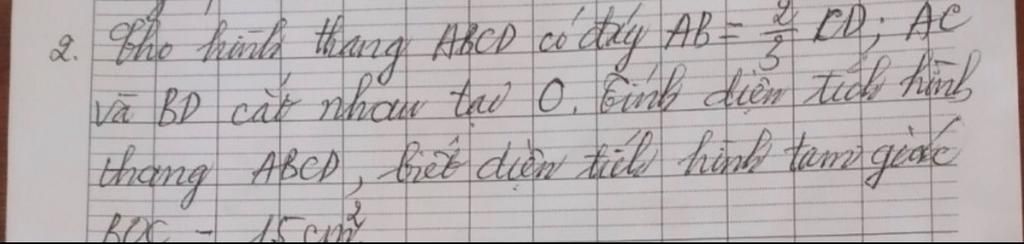 2. Cho hình thang ABCD có đáy AB = 2/3 CD; AC
và BD cắt nhau tại O. Tính diện tích hình
thang ABCD, biết diện tích hình tam giác
BOC = 15 cm²